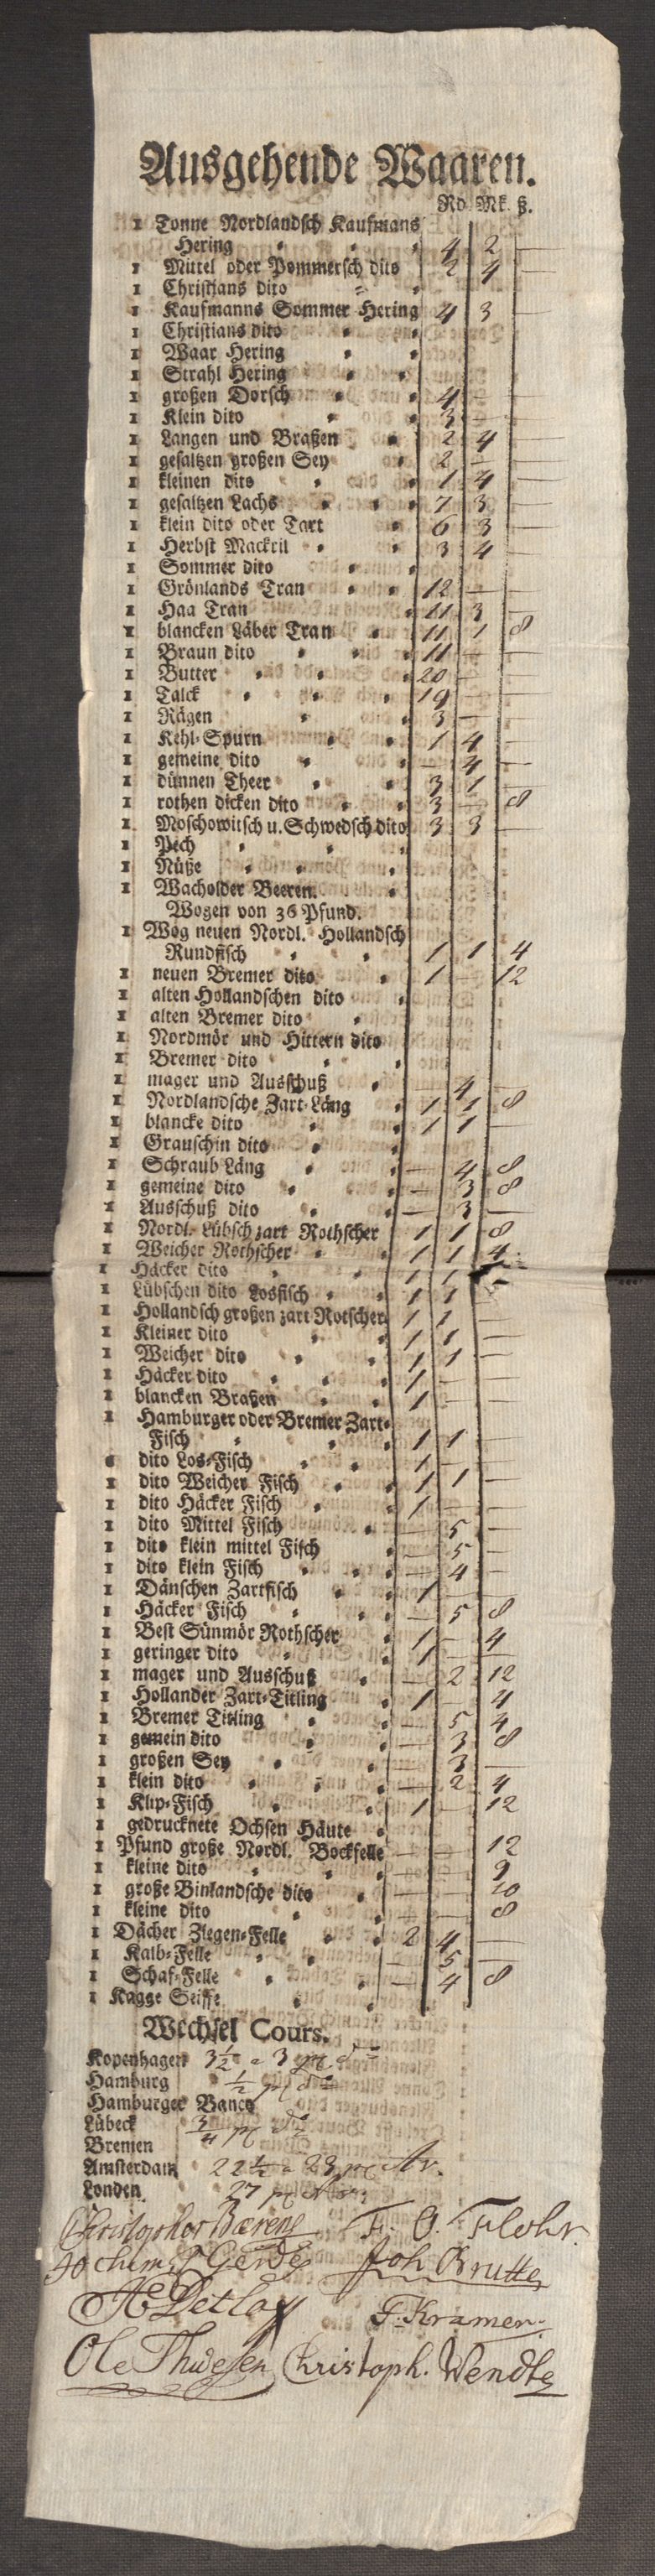 Ausgehende Waaren.
Rd. Mk. ß.
1 Tonne Nordlandsch Kaufmans
Hering 4 2 —
1 Mittel oder Pommersch dito 2 4 —
1 Christians dito
1 Kaufmanns Sommer Hering 4 3 —
1 Christians dito
1 Waar Hering
1 Strahl Hering
1 großen Dorsch 4 — —
1 Klein dito 3 — —
1 Langen und Braßen 2 4 —
1 gesaltzen großen Sey 2 — —
1 kleinen dito 1 4 —
1 gesaltzen Lachs 7 3 —
1 klein dito oder Tart 6 3 —
1 Herbst Mackril 3 4 —
1 Sommer dito
1 Grönlands Tran 12 — —
1 Haa Tran 11 3 —
1 blancken Läber Tran 11 1 8
1 Braun dito 11 — —
1 Butter 20 — —
1 Talck 19 — —
1 Rägen 3 — —
1 Kehl-Spurn 1 4 —
1 gemeine dito — 4 —
1 dünnen Theer 3 1 —
1 rothen dicken dito 3 — 8
1 Moschowitsch u. Schwedsch dito 3 3 —
1 Pech
1 Nüße
1 Wacholder Beeren.
Wogen von 36 Pfund.
1 Wog neuen Nordl. Hollandsch
Rundfisch 1 1 4
1 neuen Bremer dito 1 — 12
1 alten Hollandschen dito
1 alten Bremer dito
1 Nordmör und Hittern dito
1 Bremer dito
1 mager und Ausschuß — 4 —
1 Nordlandsche Zart-Läng 1 1 8
1 blancke dito 1 1 —
1 Grauschin dito
1 Schraub Läng — 4 8
1 gemeine dito — 3 8
1 Ausschuß dito — 3 —
1 Nordl. Lübsch zart Rothscher 1 1 8
1 Weicher Rothscher 1 1 4
1 Häcker dito 1 1
1 Lübschen dito Losfisch 1 1 —
1 Hollandsch großen zart Rotscher 1 1 —
1 Kleiner dito 1 1 —
1 Weicher dito 1 1 —
1 Häcker dito 1 — —
1 blancken Braßen 1 — —
1 Hamburger oder Bremer Zart-
Fisch 1 1 —
dito Los-Fisch 1 — —
1 dito Weicher Fisch 1 1 —
1 dito Häcker Fisch 1 — —
1 dito Mittel Fisch — 5 —
1 dito klein mittel Fisch — 5 —
1 dito klein Fisch — 4 —
1 Dänschen Zartfisch 1 — —
1 Häcker Fisch — 5 8
1 Best Sünmör Rothscher 1 — 4
1 geringer dito 1 — —
1 mager und Ausschuß — 2 12
1 Hollander Zart-Titling 1 — 4
1 Bremer Titling — 5 4
1 gemein dito — 3 8
1 großen Sey — 3 —
1 klein dito — 2 4
1 Klip-Fisch 1 — 12
1 gedrucknete Ochsen Häute
1 Pfund große Nordl. Bockfelle — — 12
1 kleine dito — — 9
1 große Binlandsche dito — — 10
1 kleine dito — — 8
1 Dächer Ziegen-Felle 2 4 —
1 Kalb-Felle — 5 —
1 Schaf-Felle — 4 8
1 Kagge Seiffe
Wechsel Cours.
Kopenhagen 3½ a 3
Hamburg ½
Hamburger Banco
Lübeck ¾
Bremen
Amsterdam 22½ a 23
Londen 27
Christopher Bærens F. O. Flohr.
Jochim Gerdes Joh Brutte
Detlof F. Kramer.
Ole Thuesen Christoph. Wendte